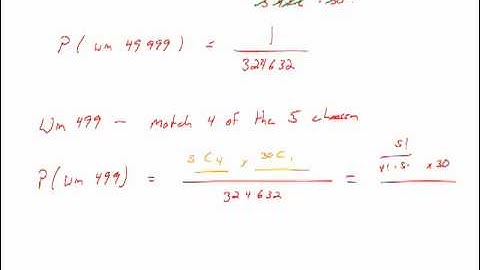 P( Win 49 999 ) = 1 / 324632
Win 499 – match 4 of the 5 chosen
P( Win 499) = 5C4 x 30C1 / 324 632 = 5! / 4! · x 30